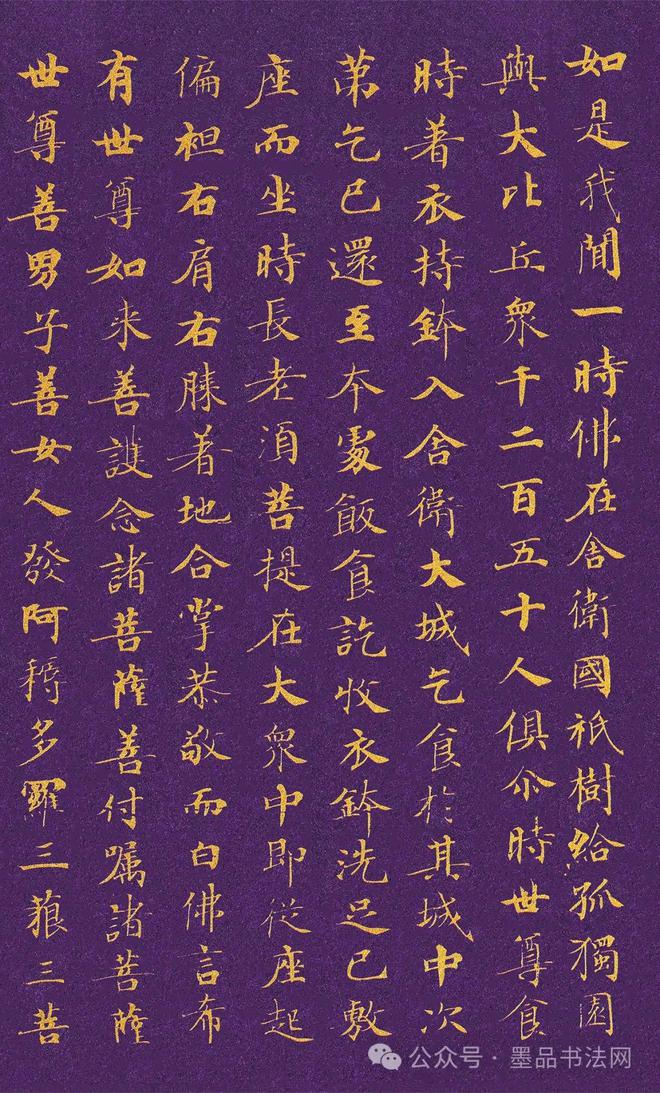 如是我聞一時佛在舍衛國祇樹給孤獨園
與大比丘眾千二百五十人俱尒時世尊食
時着衣持鉢入舍衛大城乞食於其城中次
第乞已還至本處飯食訖收衣鉢洗足已敷
座而坐時長老須菩提在大眾中即從座起
偏袒右肩右膝着地合掌恭敬而白佛言希
有世尊如来善護念諸菩薩善付嘱諸菩薩
世尊善男子善女人發阿耨多羅三藐三菩
公众号·墨品书法网